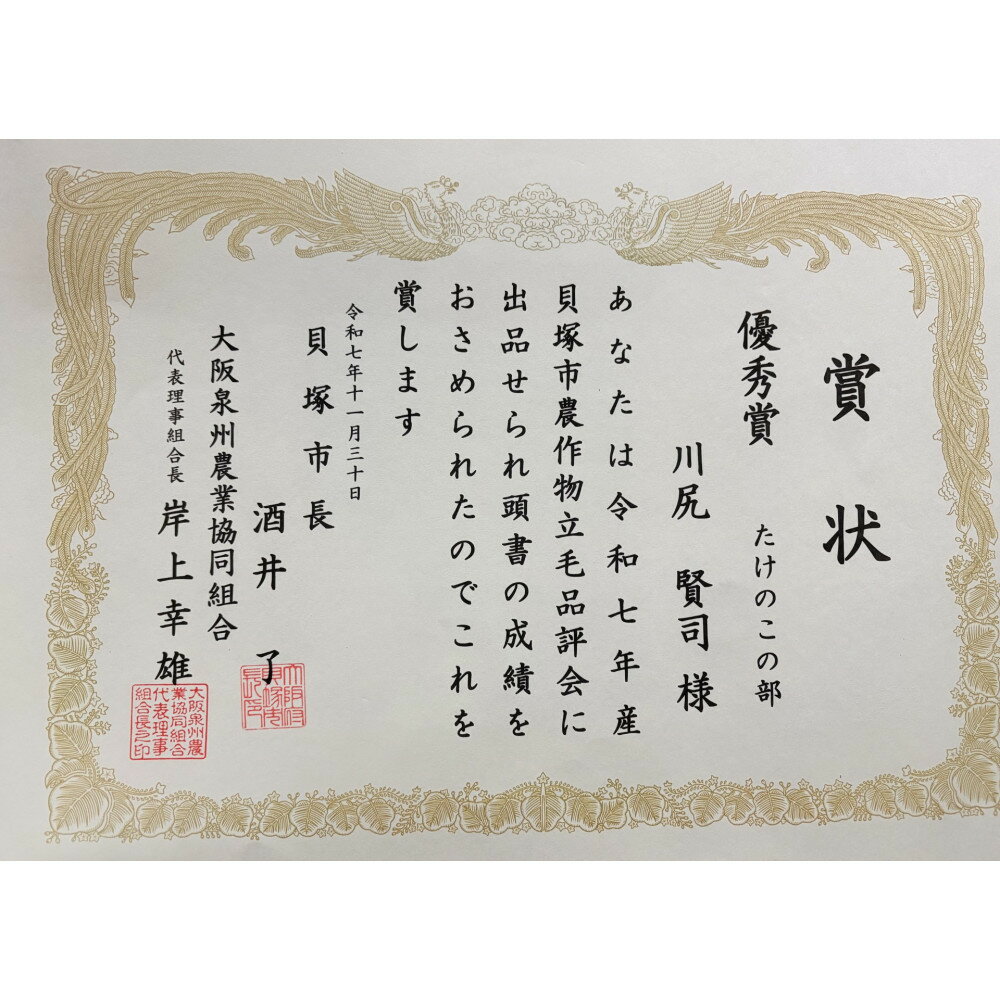 賞状
優秀賞 たけのこの部
川尻 賢司 様
あなたは令和七年産
貝塚市農作物立毛品評会に
出品せられ頭書の成績を
おさめられたのでこれを
賞します
令和七年十一月三十日
貝塚市長
酒井 了
大阪泉州農業協同組合
代表理事組合長 岸上幸雄
大阪泉州農
業協同組合
代表理事
組合長之印